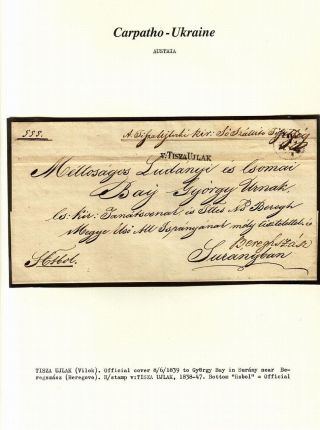 Carpatho-Ukraine
AUSTRIA
555.
A Tisza Ujlaki kir: Só Szállító
v:TISZA UJLAK
Méltóságos Ludányi és Csomai
Baÿ György Urnak
Cs: kir: Tanátsosnak és Ttes Ns Beregh
Megye Első All Ispányanak mély tisztelettel
Beregh Szász
Surányban
TISZA UJLAK (Vilok). Official cover 8/6/1839 to György Bay in Surány near Be-
regszász (Beregovo). S/stamp v:TISZA UJLAK, 1838-47. Bottom "Hobol" = Official